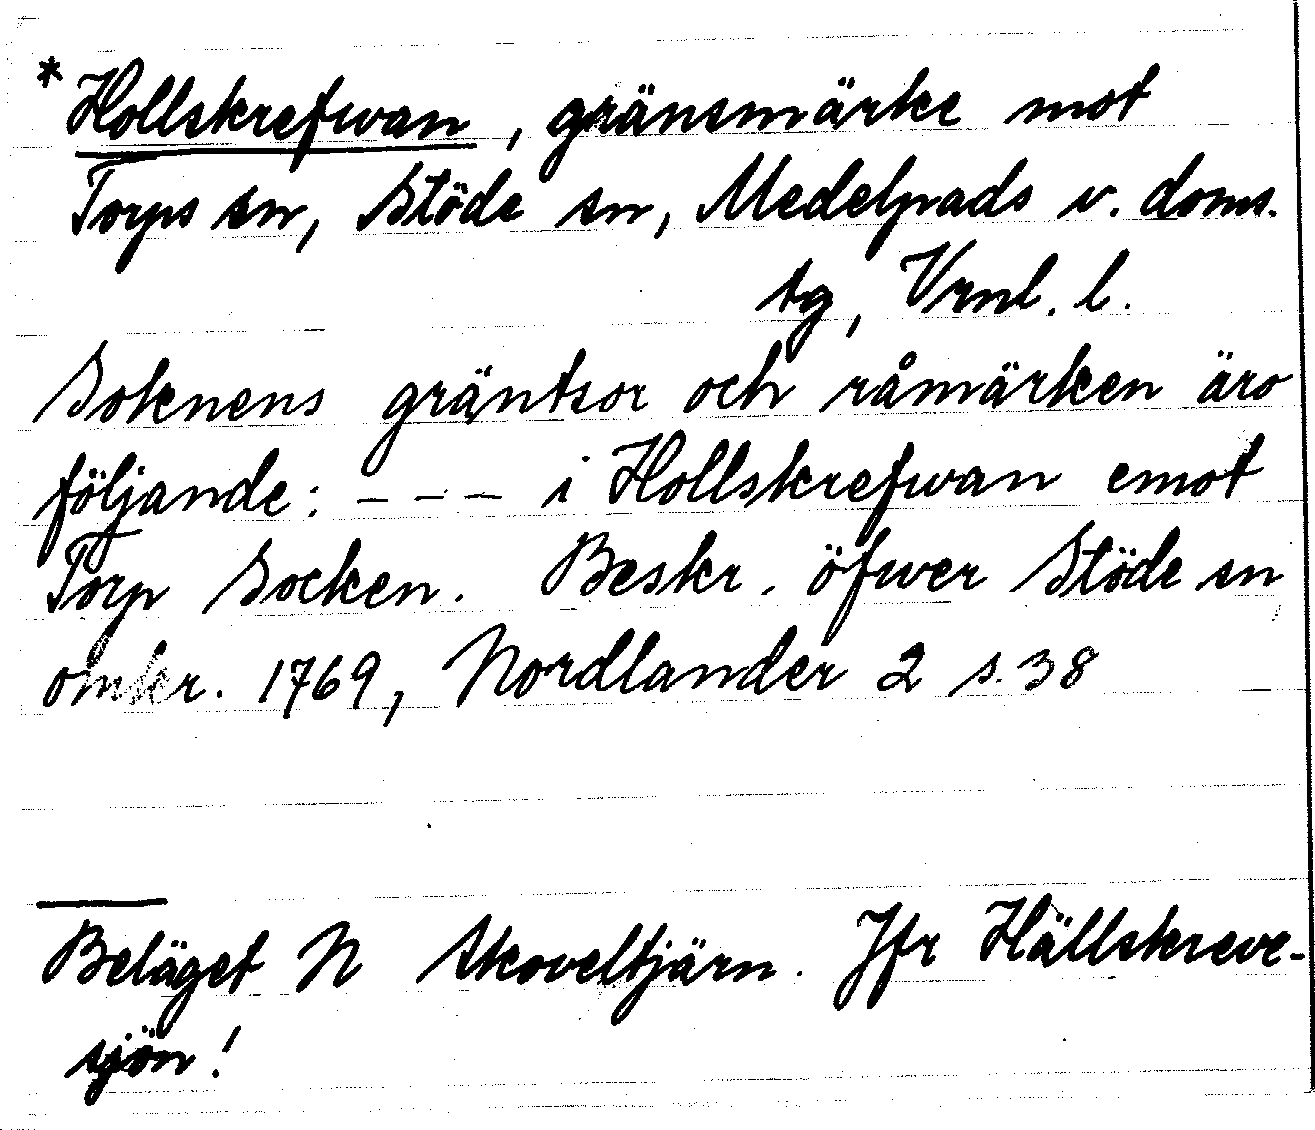 * Hollskrefwan, gränsmärke mot
Torps sn, Stöde sn, Medelpads v. doms.
tg, Vrnl. l.
Soknens gräntsor och råmärken äro
följande: – – – i Hollskrefwan emot
Torp Socken. Beskr. öfwer Stöde sn
omkr. 1769, Nordlander 2 s. 38
Beläget N Skoveltjärn. Jfr Hällskreve-
sjön!